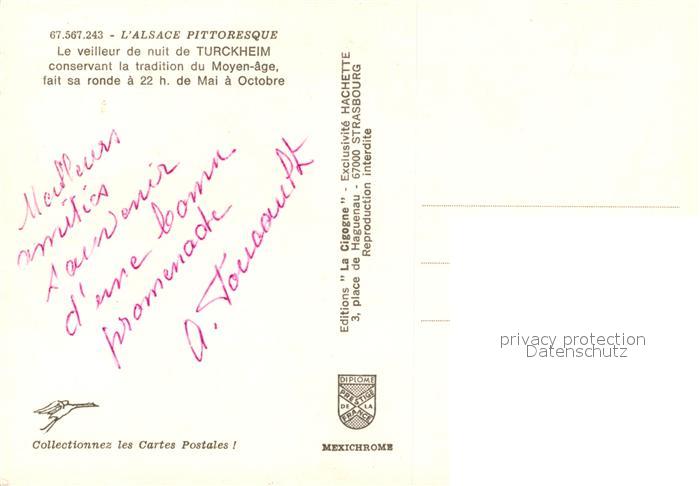 67.567.243 - L'ALSACE PITTORESQUE
Le veilleur de nuit de TURCKHEIM
conservant la tradition du Moyen-âge,
fait sa ronde à 22 h. de Mai à Octobre
Meilleurs
amitiés
souvenir
d'une bonne
promenade
A.
Editions " La Cigogne " - Exclusivité HACHETTE
3, place de Haguenau - 67000 STRASBOURG
Reproduction interdite
privacy protection
Datenschutz
DIPLOME
PRESTIGE
DE LA
FRANCE
Collectionnez les Cartes Postales !
MEXICHROME